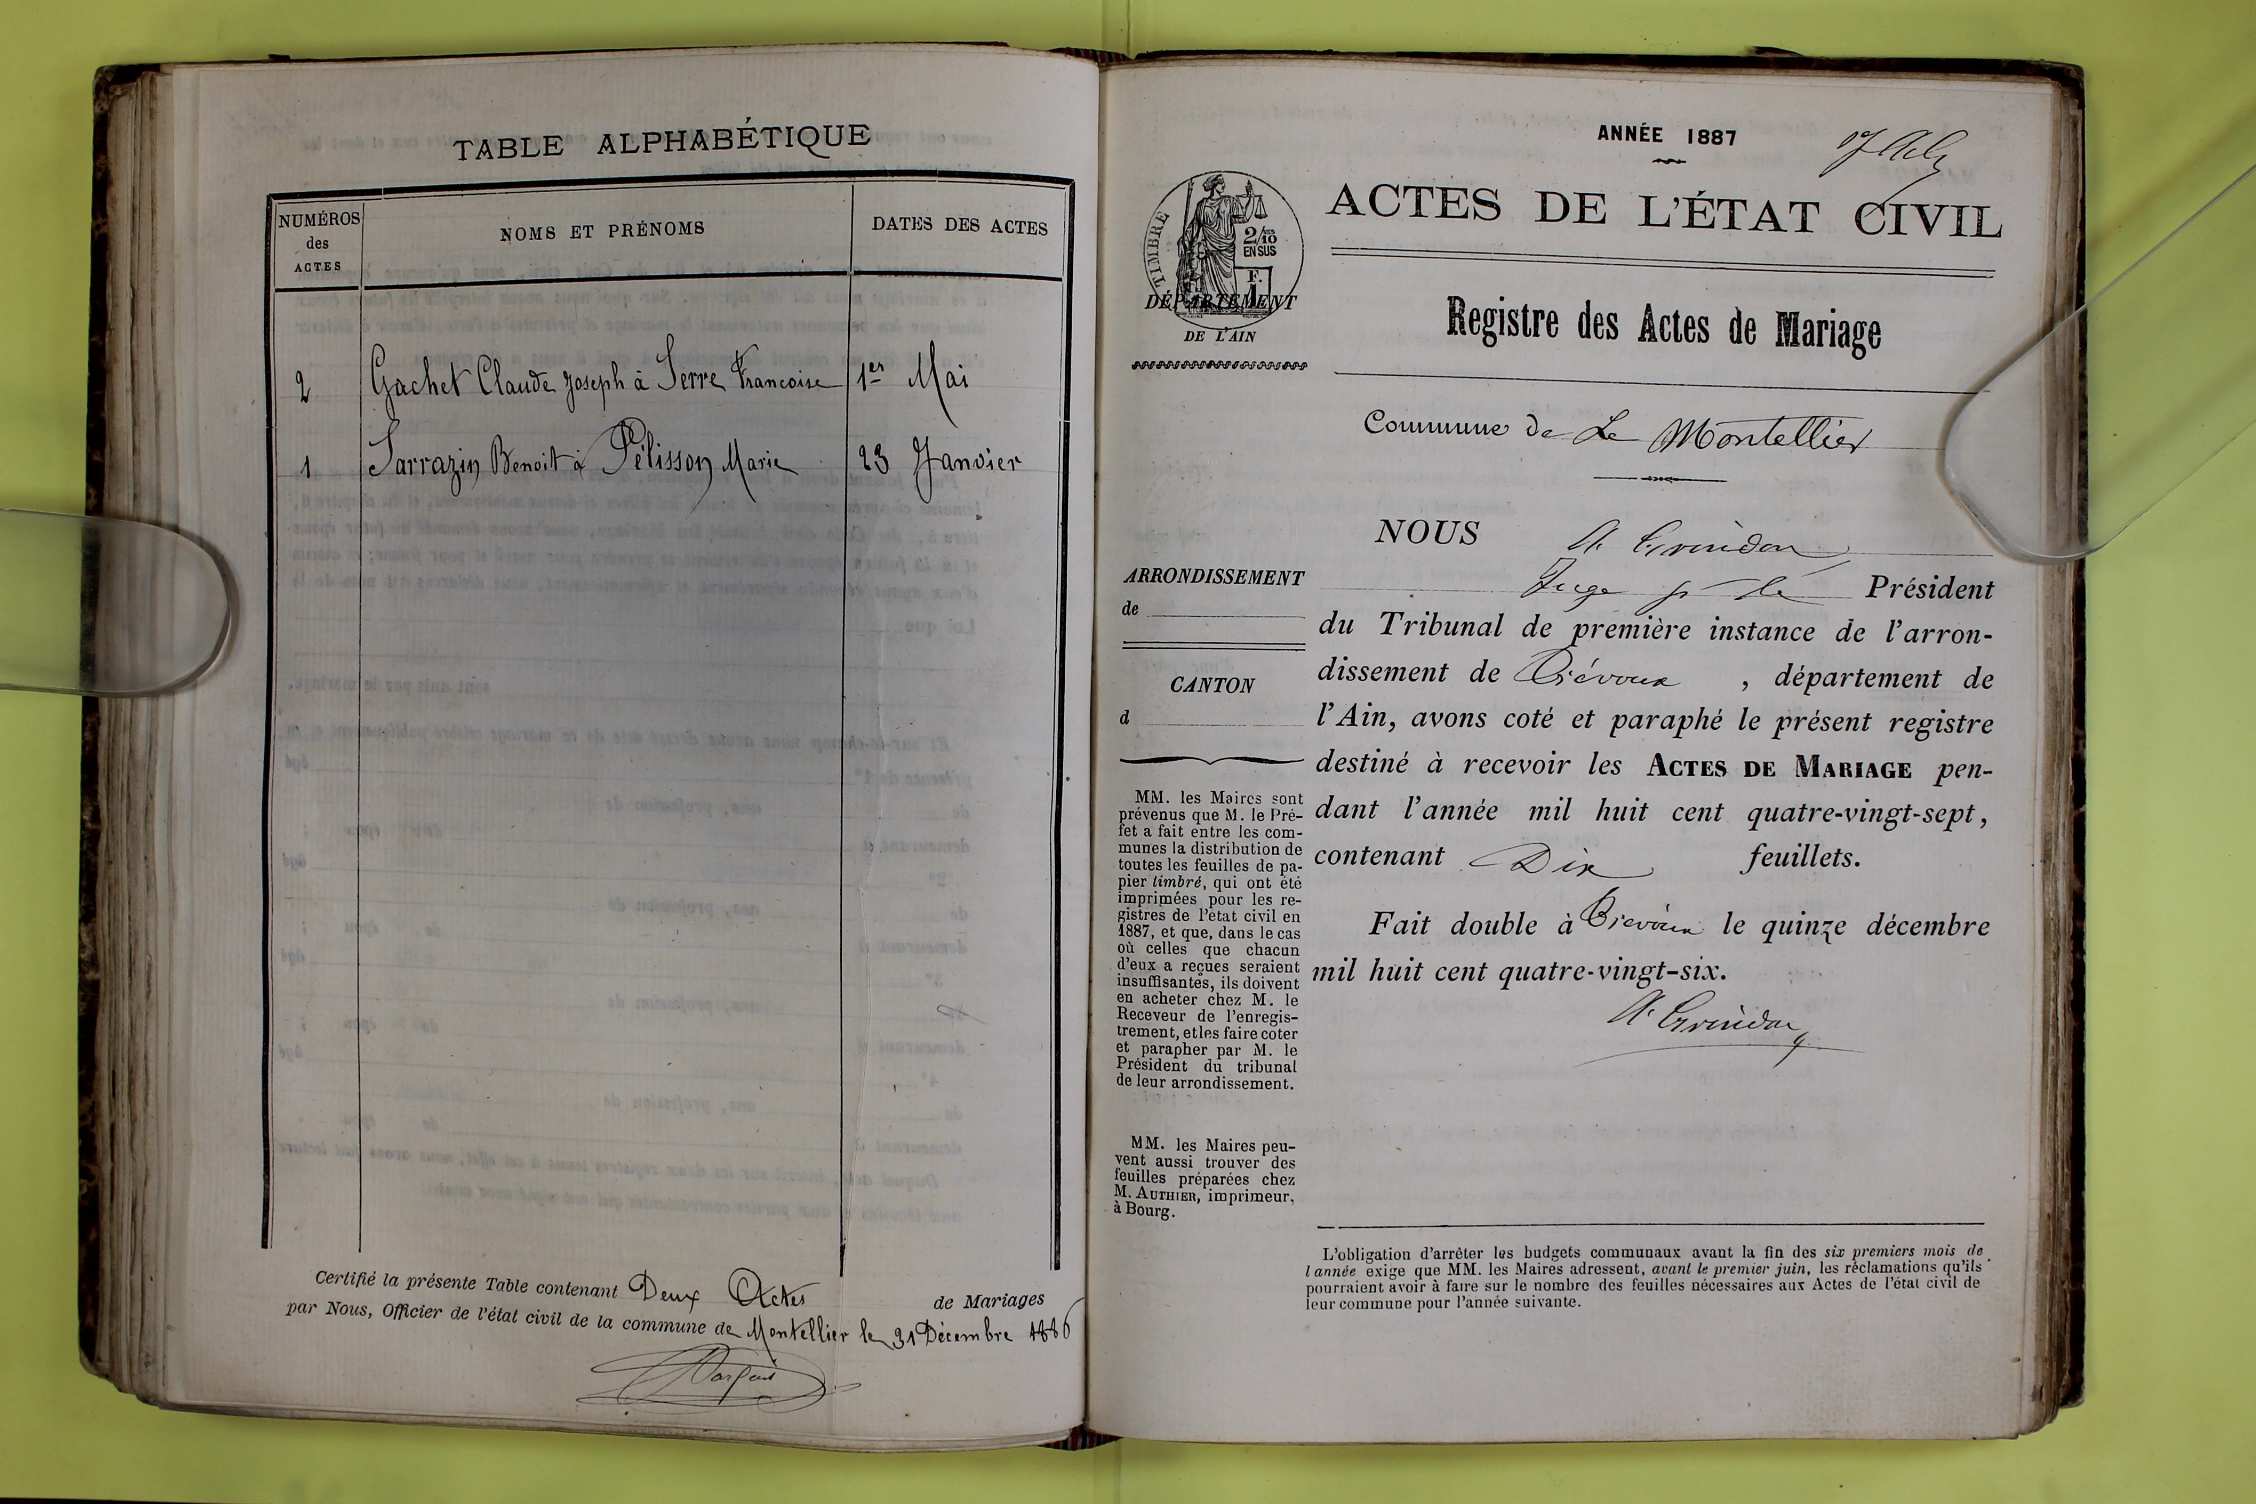 TABLE ALPHABÉTIQUE
NUMÉROS
des
ACTES
NOMS ET PRÉNOMS
DATES DES ACTES
2 Gachet Claude Joseph à Serre Francoise 1er Mai
1 Sarrazin Benoit à Pélisson Marie 23 Janvier
Certifié la présente Table contenant Deux Actes de Mariages
par Nous, Officier de l'état civil de la commune de Montellier le 31 Décembre 1886
ANNÉE 1887
TIMBRE
2/10
EN SUS
F.
1
DÉPARTEMENT
DE L'AIN
ACTES DE L'ÉTAT CIVIL
Registre des Actes de Mariage
Commune de Le Montellier
ARRONDISSEMENT
de
CANTON
d
MM. les Maires sont
prévenus que M. le Pré-
fet a fait entre les com-
munes la distribution de
toutes les feuilles de pa-
pier timbré, qui ont été
imprimées pour les re-
gistres de l'état civil en
1887, et que, dans le cas
où celles que chacun
d'eux a reçues seraient
insuffisantes, ils doivent
en acheter chez M. le
Receveur de l'enregis-
trement, et les faire coter
et parapher par M. le
Président du tribunal
de leur arrondissement.
MM. les Maires peu-
vent aussi trouver des
feuilles préparées chez
M. AUTHIER, imprimeur,
à Bourg.
NOUS A. Grindon
Juge Président
du Tribunal de première instance de l'arron-
dissement de Trévoux, département de
l'Ain, avons coté et paraphé le présent registre
destiné à recevoir les ACTES DE MARIAGE pen-
dant l'année mil huit cent quatre-vingt-sept,
contenant Dix feuillets.
Fait double à Trévoux le quinze décembre
mil huit cent quatre-vingt-six.
A. Grindon
L'obligation d'arrêter les budgets communaux avant la fin des six premiers mois de
l'année exige que MM. les Maires adressent, avant le premier juin, les réclamations qu'ils
pourraient avoir à faire sur le nombre des feuilles nécessaires aux Actes de l'état civil de
leur commune pour l'année suivante.